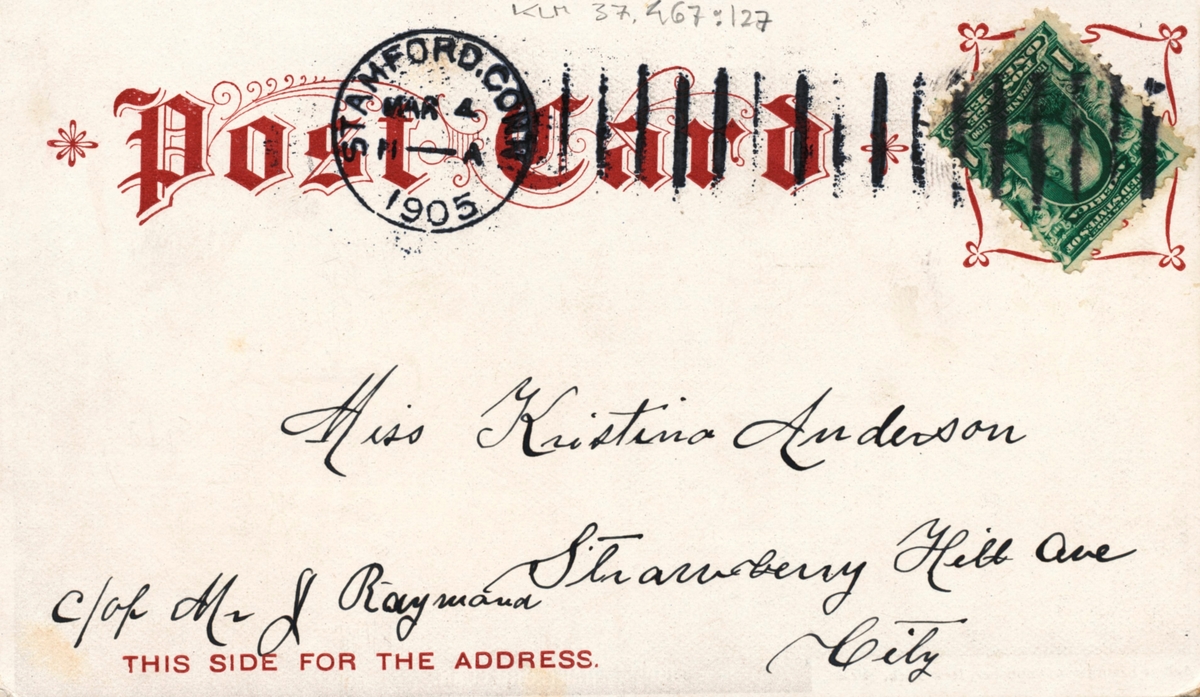 KLM 37.467:127
Post Card
STAMFORD.CONN
MAR 4
1905
Miss Kristina Anderson
Strawberry Hill Ave
c/of Mr J Raymond
City
THIS SIDE FOR THE ADDRESS.